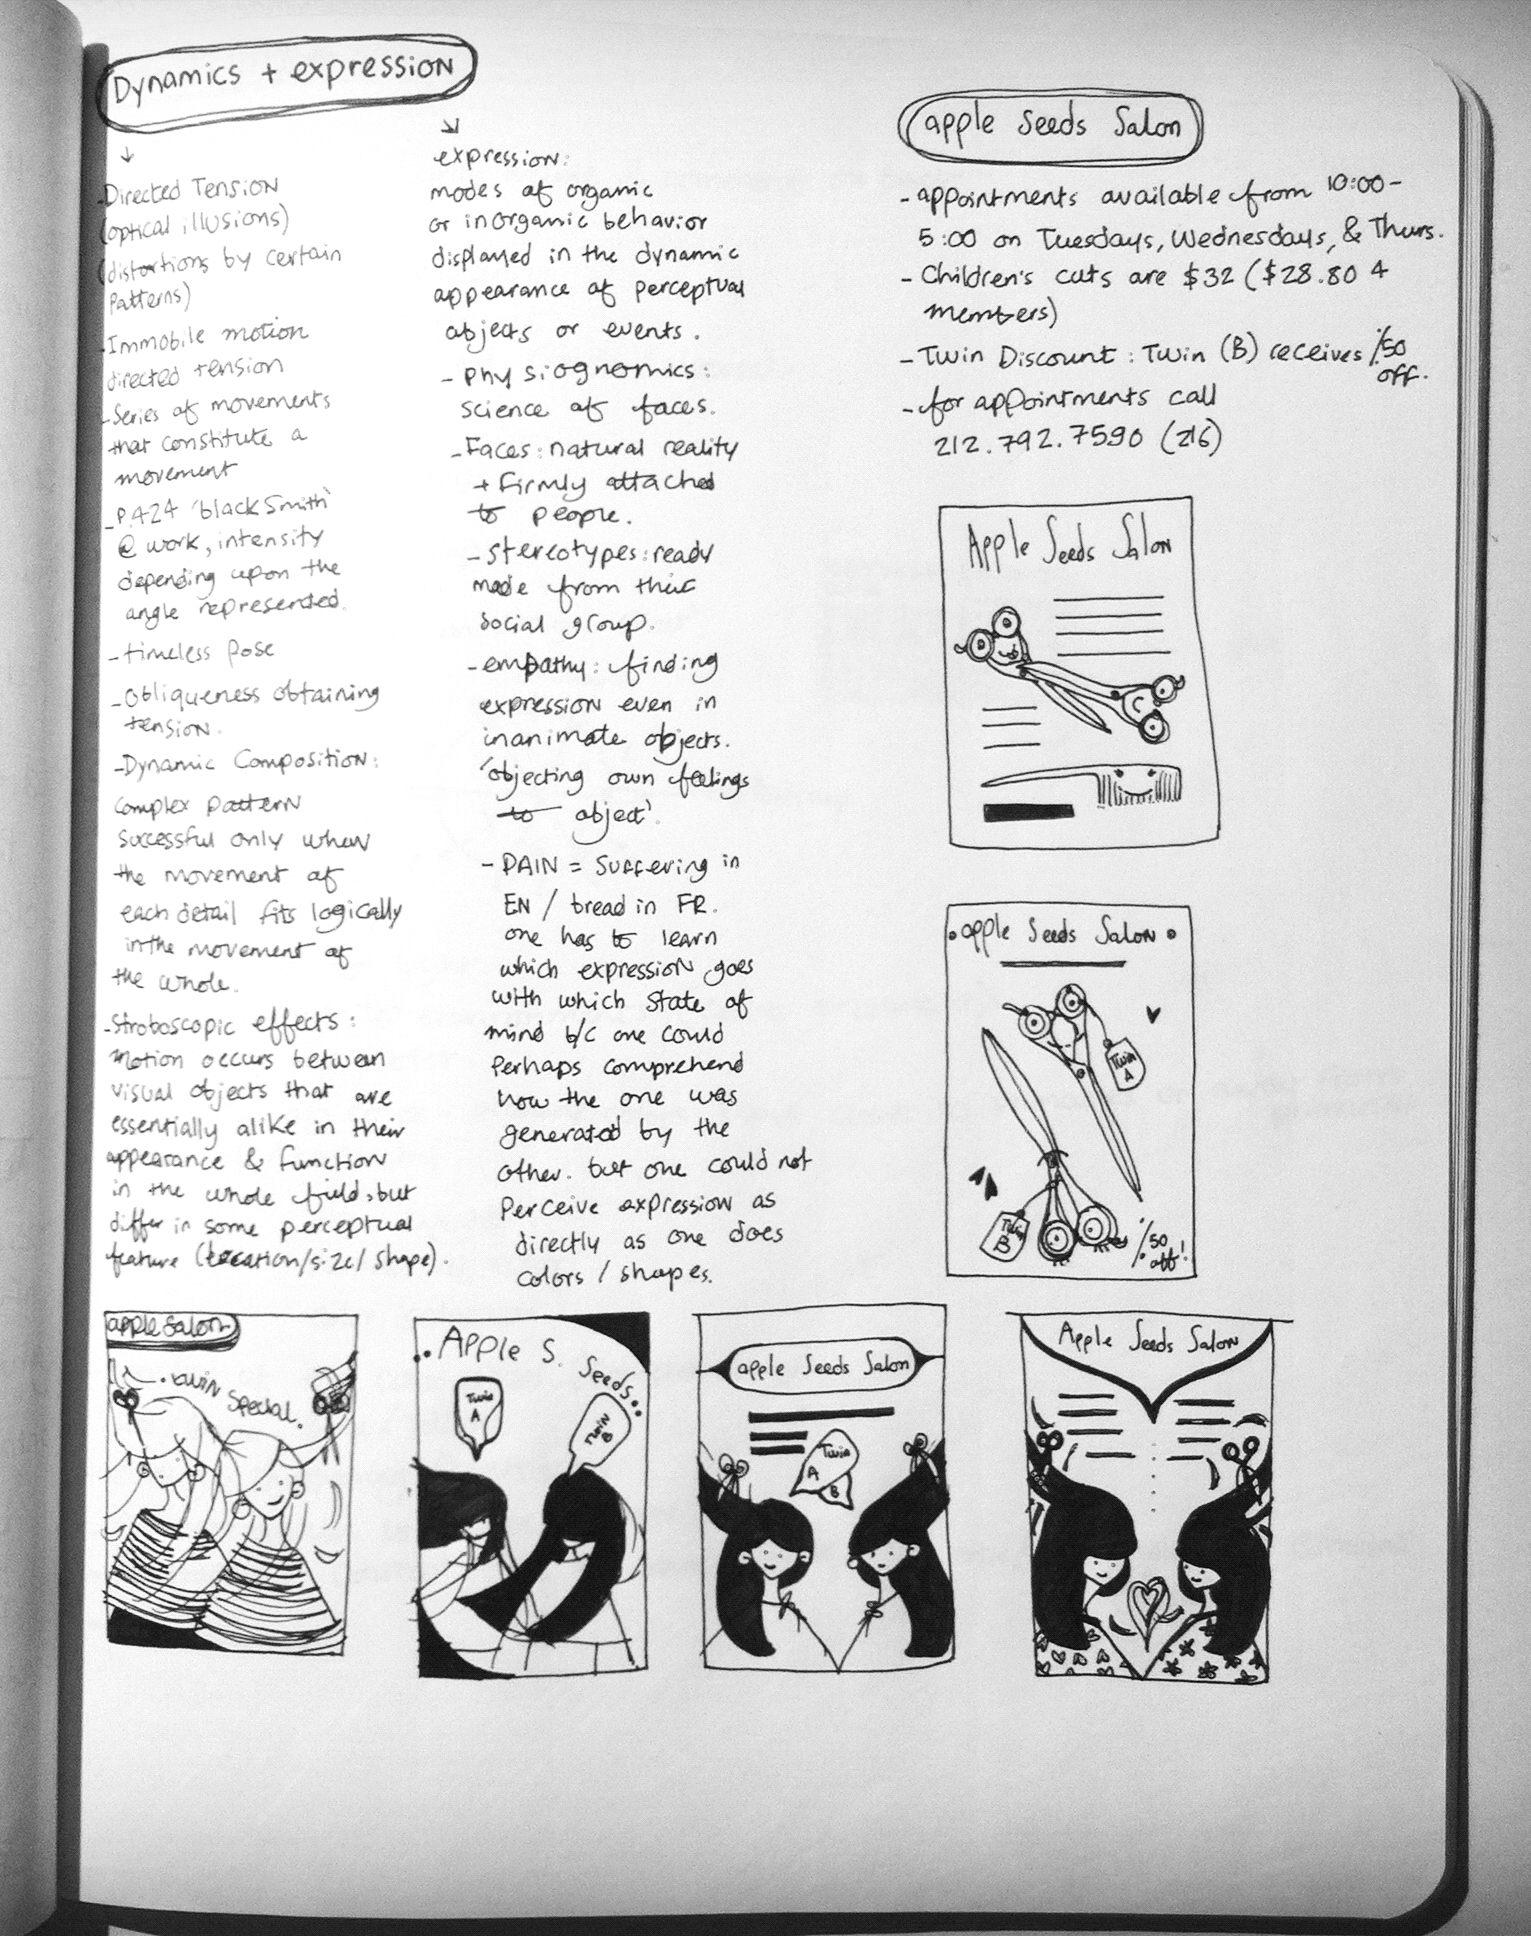 Dynamics + expression
- Directed Tension
(optical illusions)
(distortions by certain
patterns)
- Immobile motion
directed tension
- Series of movements
that constitute a
movement
- P.424 'blackSmith'
@ work, intensity
depending upon the
angle represented.
- timeless pose
- Obliqueness obtaining
tension.
- Dynamic Composition:
complex pattern
successful only when
the movement of
each detail fits logically
in the movement of
the whole.
- Stroboscopic effects:
motion occurs between
visual objects that are
essentially alike in their
appearance & function
in the whole field, but
differ in some perceptual
feature (location/size/shape).
expression:
modes of organic
or inorganic behavior
displayed in the dynamic
appearance of perceptual
objects or events.
- Physiognomics:
science of faces.
- Faces: natural reality
+ firmly attached
to people.
- stereotypes: ready
made from their
social group.
- empathy: finding
expression even in
inanimate objects.
'objecting own feelings
to object'.
- PAIN = Suffering in
EN / bread in FR.
one has to learn
which expression goes
with which state of
mind b/c one could
perhaps comprehend
how the one was
generated by the
other. but one could not
perceive expression as
directly as one does
colors / shapes.
apple Seeds Salon
- appointments available from 10:00-
5:00 on Tuesdays, Wednesdays, & Thurs.
- Children's cuts are $32 ($28.80 4
members)
- Twin Discount: Twin (B) receives %50
off.
- for appointments call
212.792.7590 (216)
Apple Seeds Salon
apple Seeds Salon
Twin
A
Twin
B
%50
off!
apple Salon
twin special.
Apple S. Seeds
Twin
A
Twin
B
apple Seeds Salon
Twin
A
B
Apple Seeds Salon